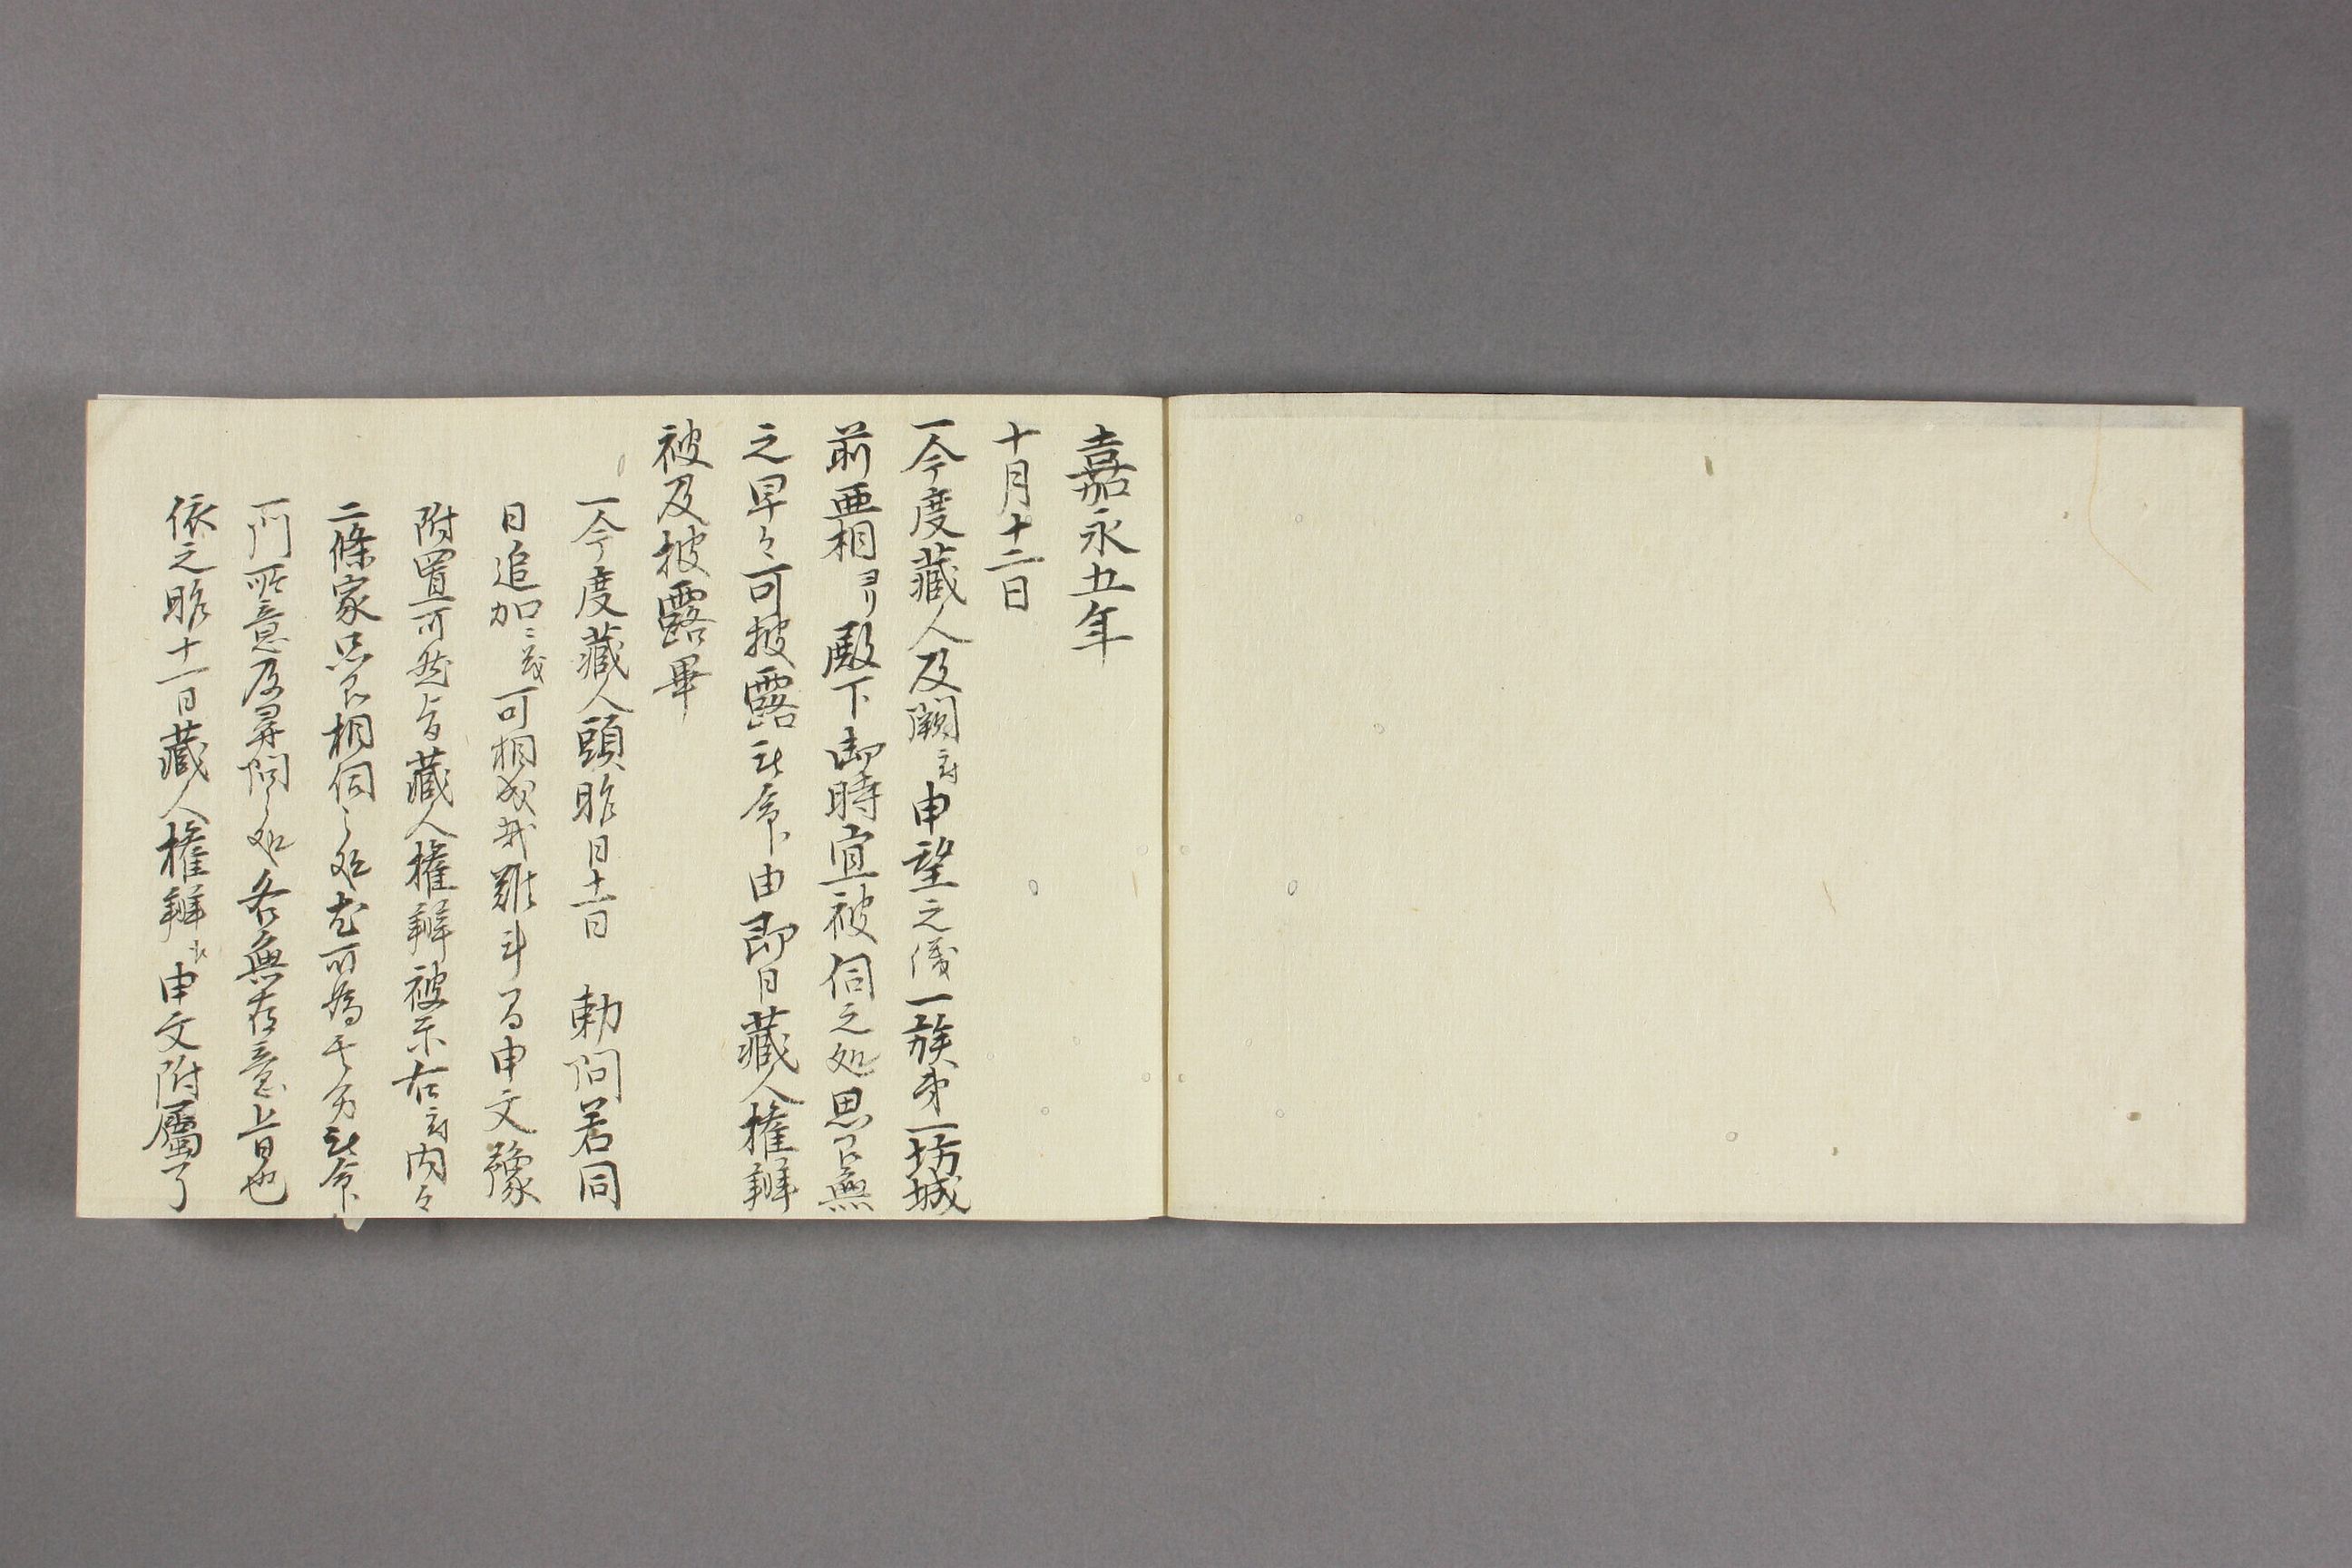 嘉永五年
十月十二日
一今度藏人及闕ニ付申望之儀一族第一坊城
前亜相ヨリ殿下御時宜被伺之処思召無
之早々可披露被命由即日藏人権辨
被及披露畢
一今度藏人頭昨日十一日 勅問若同
日追加ニ茂可相成哉難斗間申文豫
附置可然旨藏人権辨被示右ニ付内々
二條家思召相伺之処尤可為其分被命
一門所意及尋問之処各無存意旨也
依之昨十一日藏人権辨申文附属了